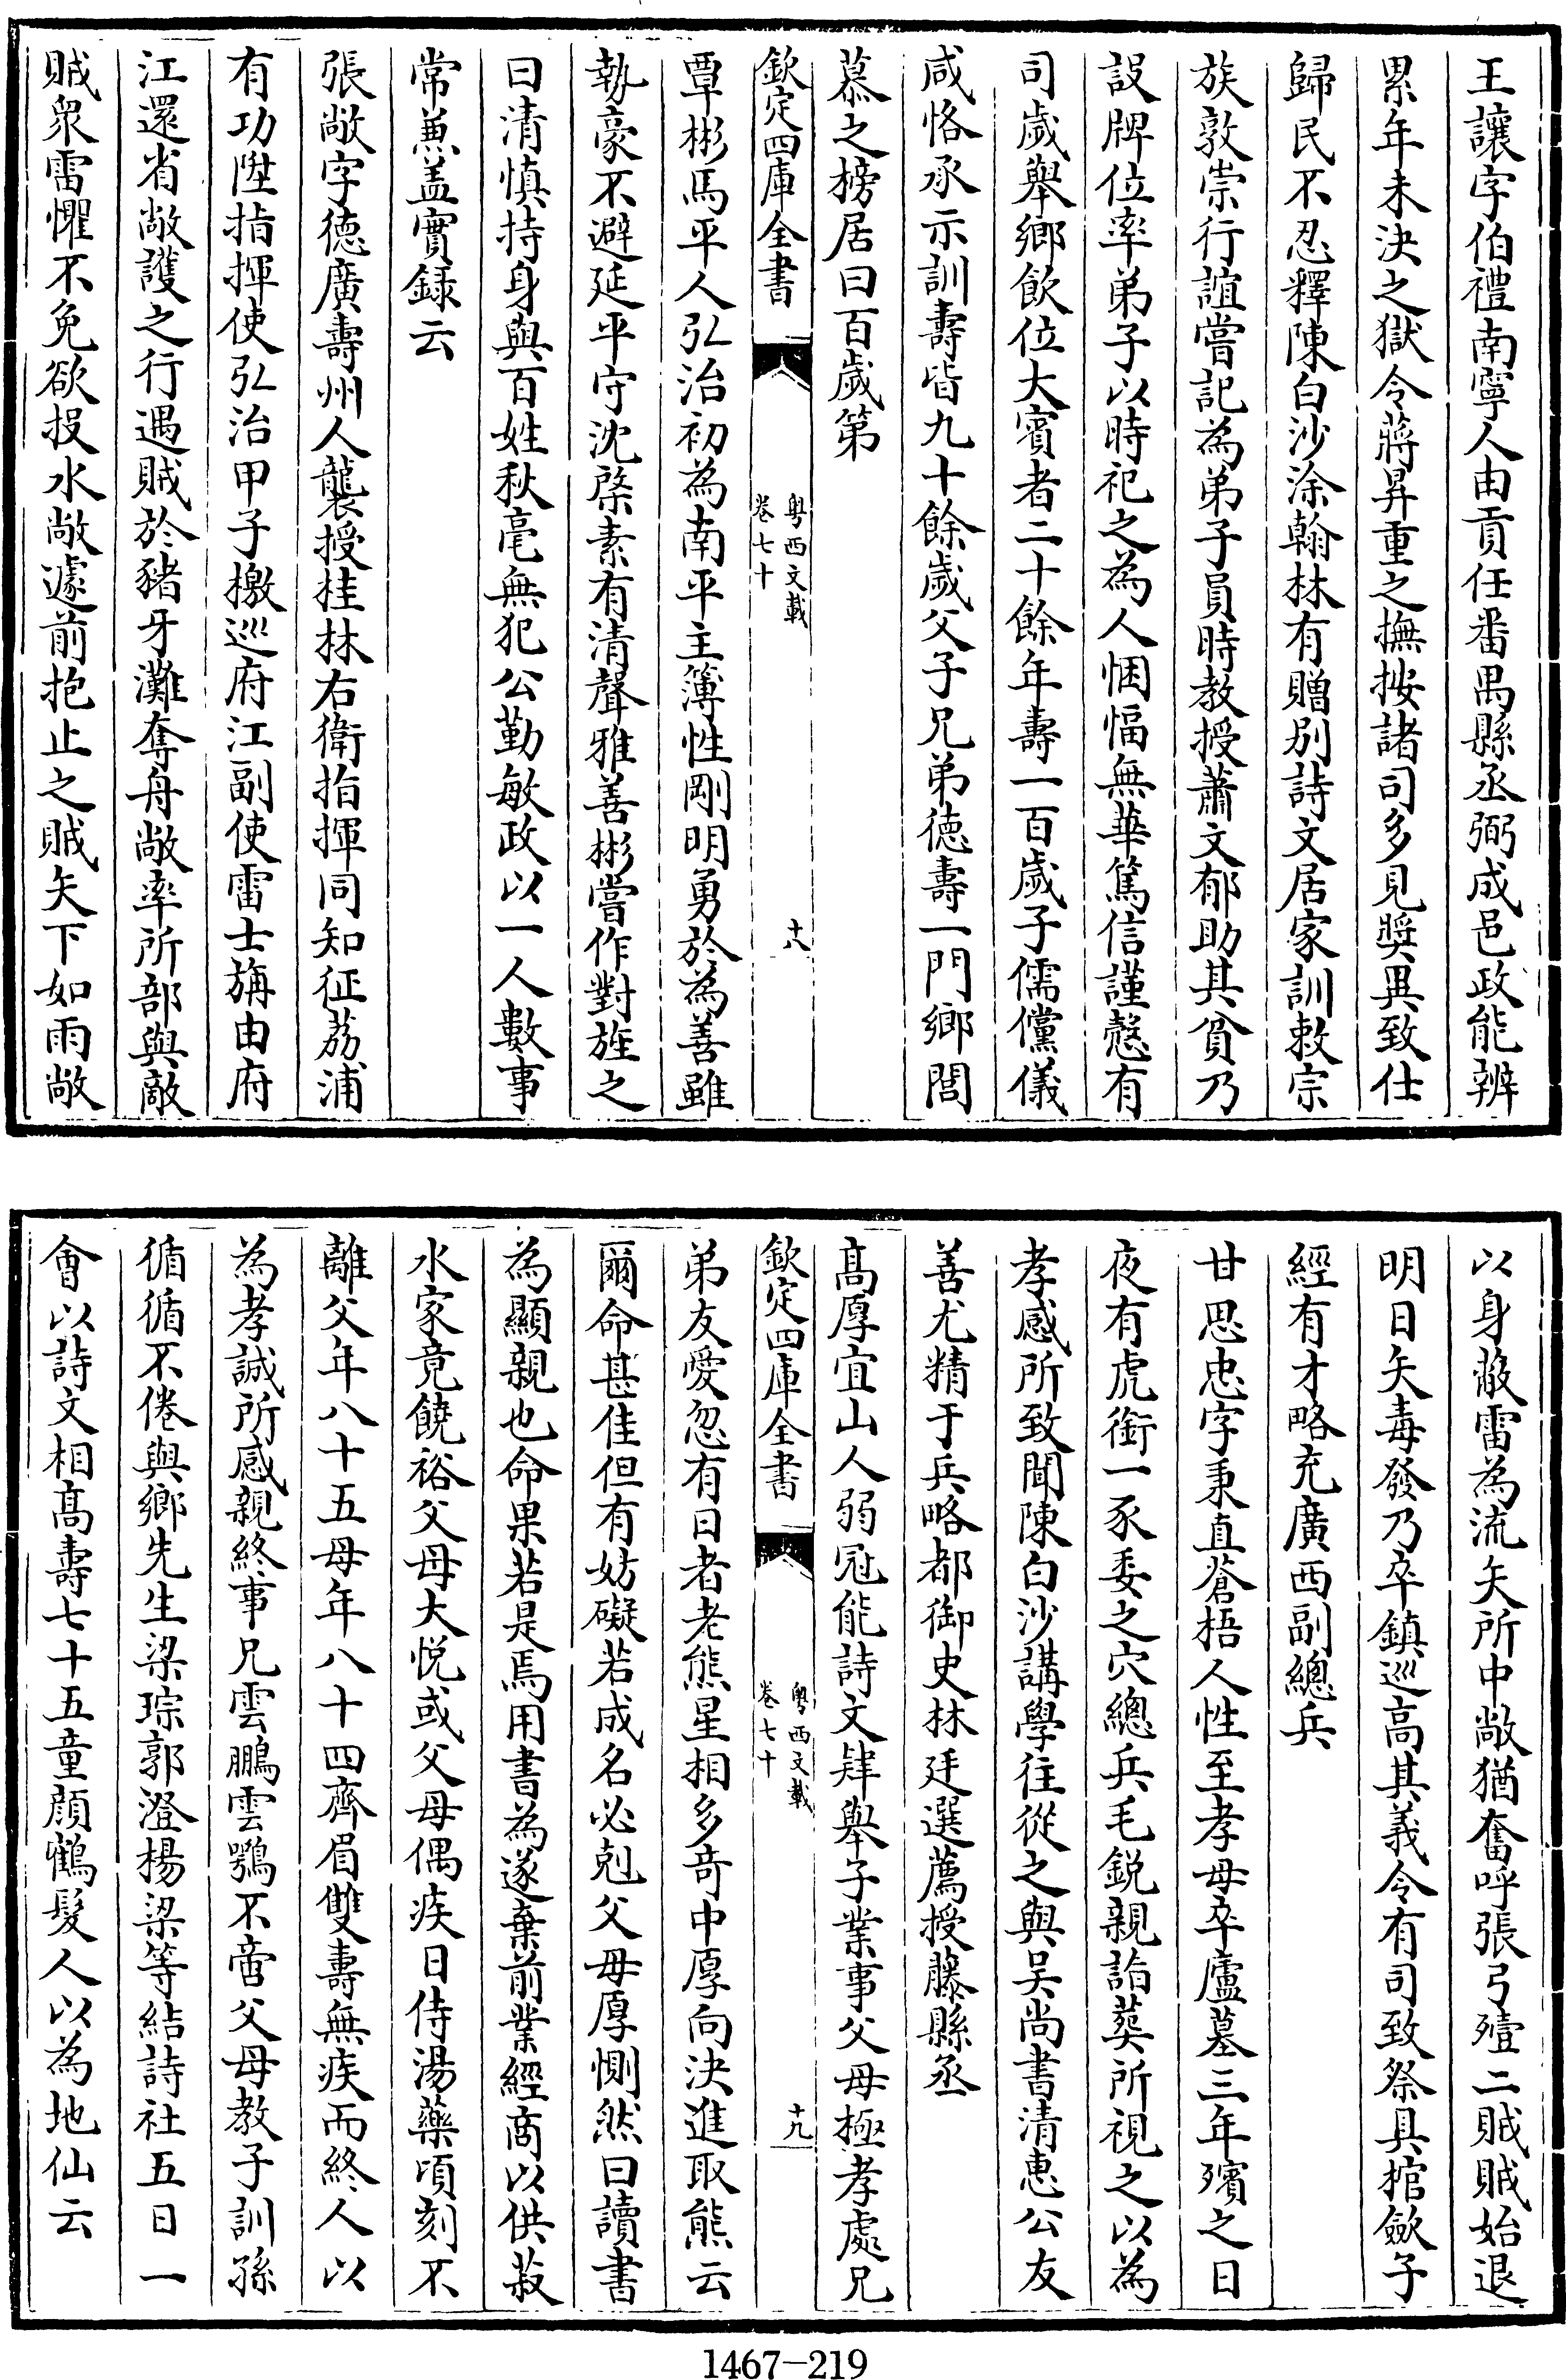 王讓字伯禮南寧人由貢任番禺縣丞弼成邑政能辨
累年未決之獄令蔣昇重之撫按諸司多見奬異致仕
歸民不忍釋陳白沙涂翰林有贈別詩文居家訓敕宗
族敦崇行誼嘗記為弟子員時教授蕭文郁助其貧乃
設牌位率弟子以時祀之為人悃愊無華篤信謹慤有
司歲舉鄉飲位大賓者二十餘年壽一百歲子儒儻儀
咸恪承示訓壽皆九十餘歲父子兄弟德壽一門鄉閭
慕之榜居曰百歲第
欽定四庫全書
粤西文載
卷七十
十八
覃彬馬平人弘治初為南平主簿性剛明勇於為善雖
勢豪不避延平守沈棨素有清聲雅善彬嘗作對旌之
曰清慎持身與百姓秋毫無犯公勤敏政以一人數事
常兼盖實録云
張敞字德廣壽州人襲授桂林右衛指揮同知征荔浦
有功陞指揮使弘治甲子檄巡府江副使雷士旃由府
江還省敞護之行遇賊於豬牙灘奪舟敞率所部與敵
賊衆雷懼不免欲投水敞遽前抱止之賊矢下如雨敞
以身蔽雷為流矢所中敞猶奮呼張弓殪二賊賊始退
明日矢毒發乃卒鎮巡高其義令有司致祭具棺斂子
經有才略充廣西副總兵
甘思忠字秉直蒼梧人性至孝母卒廬墓三年殯之日
夜有虎銜一豕委之穴總兵毛鋭親詣葬所視之以為
孝感所致聞陳白沙講學往從之與吴尚書清惠公友
善尤精于兵略都御史林廷選薦授滕縣丞
髙厚宜山人弱冠能詩文肄舉子業事父母極孝處兄
欽定四庫全書
粤西文載
卷七十
十九
弟友愛忽有日者老熊星相多竒中厚向決進取熊云
爾命甚佳但有妨礙若成名必尅父母厚惻然曰讀書
為顯親也命果若是焉用書為遂棄前業經商以供菽
水家竟饒裕父母大悦或父母偶疾日侍湯藥頃刻不
離父年八十五母年八十四齊眉雙壽無疾而終人以
為孝誠所感親終事兄雲鵬雲鶚不啻父母教子訓孫
循循不倦與鄉先生梁琮郭澄楊梁等結詩社五日一
會以詩文相髙壽七十五童顔鶴髮人以為地仙云
1467-219